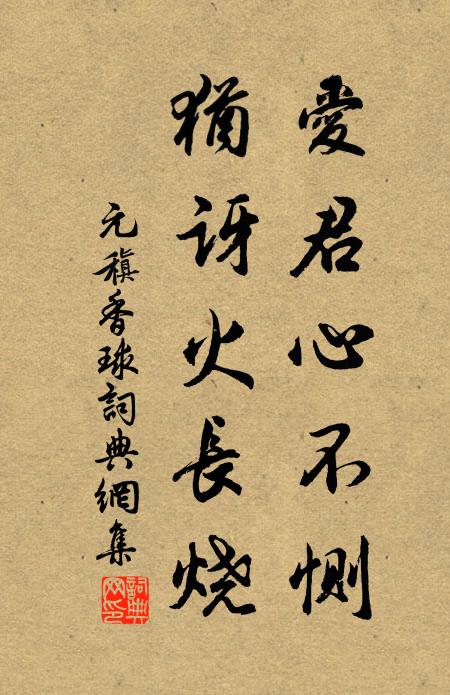 愛君心不惻
猶訝火長燒
元稹香球詞典網集
詞典网印